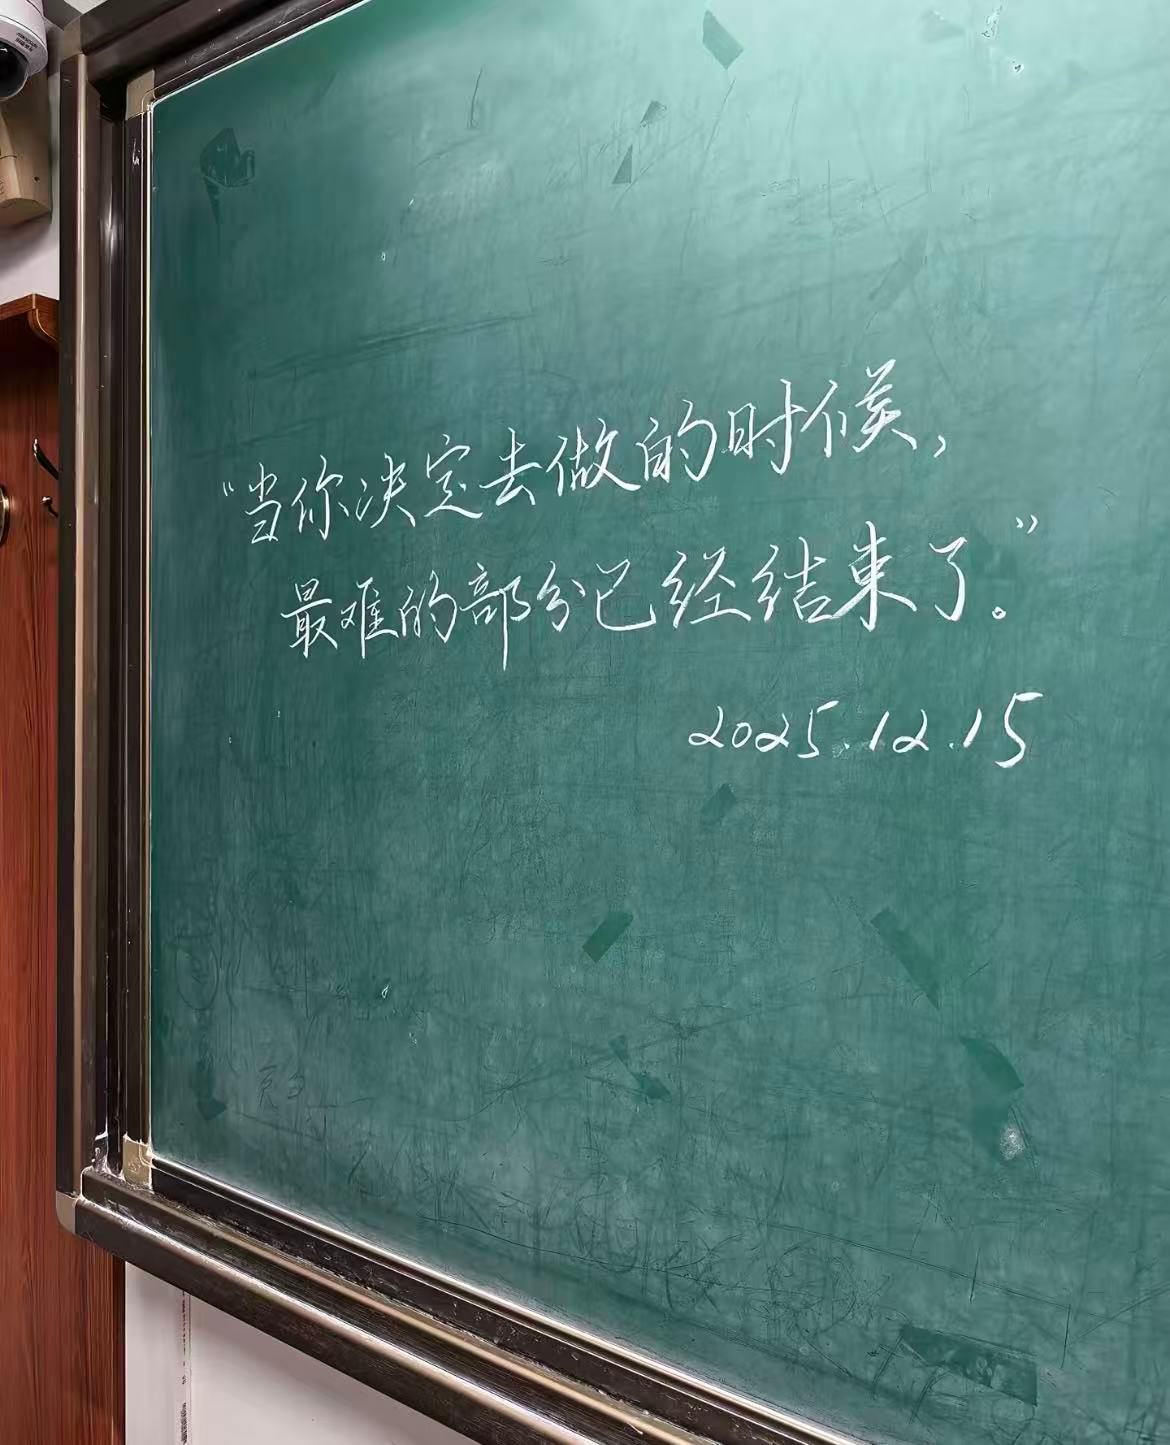 “当你决定去做的时候，
最难的部分已经结束了。”
2025.12.15